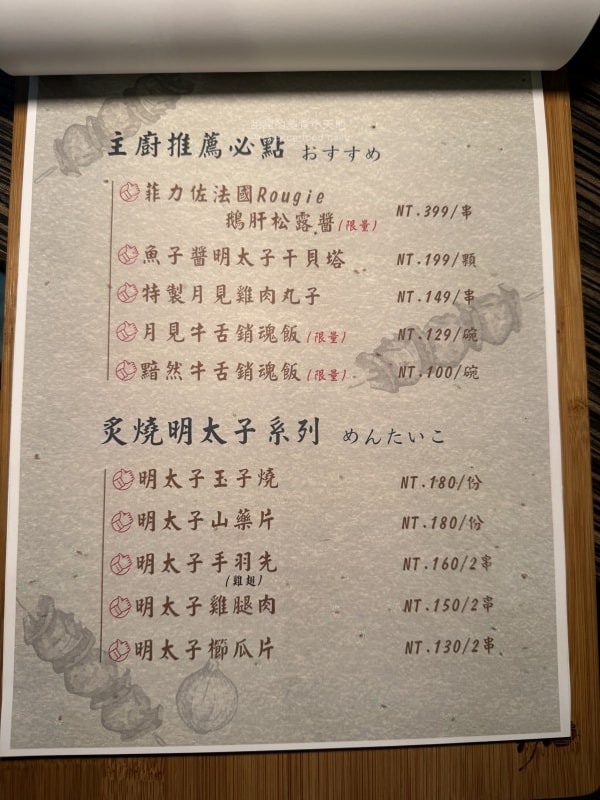 主廚推薦必點 おすすめ
菲力佐法國Rougie
鵝肝松露醬(限量) NT.399/串
魚子醬明太子干貝塔 NT.199/顆
特製月見雞肉丸子 NT.149/串
月見牛舌銷魂飯(限量) NT.129/碗
黯然牛舌銷魂飯(限量) NT.100/碗
炙燒明太子系列 めんたいこ
明太子玉子燒 NT.180/份
明太子山藥片 NT.180/份
明太子手羽先 NT.160/2串
(雞翅)
明太子雞腿肉 NT.150/2串
明太子櫛瓜片 NT.130/2串